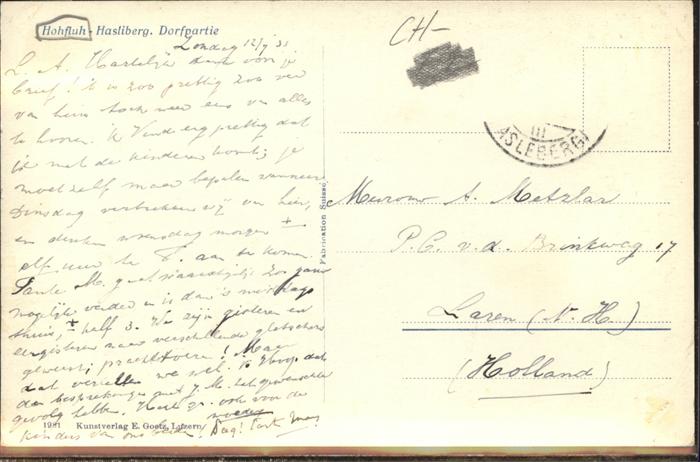 Hohfluh - Hasliberg. Dorfpartie
Zondag 12/7 31
L. A. Hartelijk dank voor je
brief! 't is zoo prettig zoo ver
van huis toch weer eens van alles
te hooren. Ik vind erg prettig dat
je met de kinderen komt; je
moet zelf maar bepalen wanneer
Dinsdag vertrekken wij van hier,
en denken woensdag morgen ±
elf uur te aan te komen.
Tante M. gaat zoo gauw
mogelijk verder en is dan 's middags
thuis, ± half 3. We zijn gisteren en
eergisteren naar verschillende gletschers
geweest; prachtvoer! Maar
dat vertellen we wel. Ik hoop dat
de besprekingen met J. M. het gewenschte
gevolg hebben. Hart. gr. ook voor de
kinders van ons beide. moeder
Dag!
1981 Kunstverlag E. Goetz, Luzern
Fabrication Suisse
CH-
III
ASLEBERG
Mevrouw A. Metzlar
P.C. v.d. Brinkweg 17
Laren (N.H.)
(Holland)